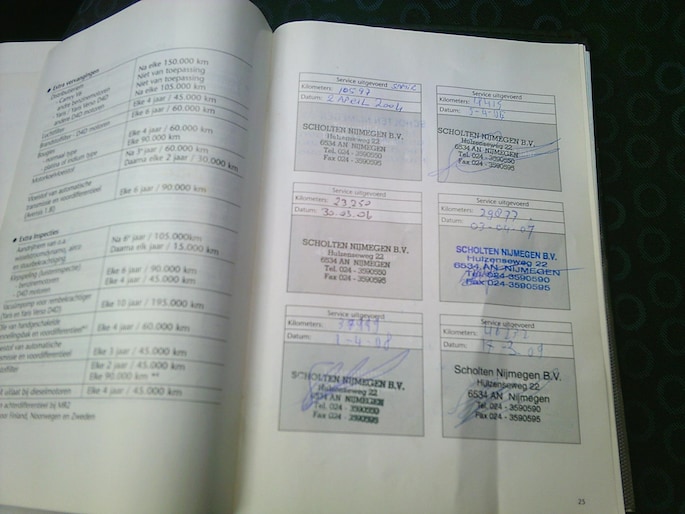 • Extra vervangingen
Distributieriem
- Camry V6
Na elke 150.000 km
andere benzinemotoren
Niet van toepassing
- Yaris / Yaris Verso D4D
Niet van toepassing
andere D4D motoren
Na elke 105.000 km
Luchtfilter
Elke 4 jaar / 45.000 km
Brandstoffilter - D4D motoren
Elke 6 jaar / 60.000 km
Bougies
- normaal type
Elke 4 jaar / 60.000 km
- platina of iridium type
Elke 90.000 km
Motorkoelvloeistof
Na 7e jaar / 60.000 km
Daarna elke 2 jaar / 30.000 km
Vloeistof van automatische
transmissie en voordifferentieel
(Avensis 1.8)
Elke 6 jaar / 90.000 km
• Extra inspecties
Aandrijfriem van o.a.
Na 6e jaar / 105.000km
Daarna elk jaar / 15.000 km
Klepspeling
- benzinemotoren
Elke 6 jaar / 90.000 km
- D4D motoren
Elke 4 jaar / 45.000 km
Vacuümpomp voor rembekrachtiger
(Yaris en Yaris Verso D4D)
Elke 10 jaar / 195.000 km
Olie van handgeschakelde
Elke 4 jaar / 60.000 km
van automatische
en voordifferentieel
Elke 3 jaar / 45.000 km
Elke 2 jaar / 45.000 km
Elke 90.000 km
uitlaat bij dieselmotoren
Elke 4 jaar / 45.000 km
achterdifferentieel bij MR2
Finland, Noorwegen en Zweden
Service uitgevoerd
Kilometers: 10597
Datum: 2 April 2004
SCHOLTEN NIJMEGEN B.V.
Hulzenseweg 22
6534 AN NIJMEGEN
Tel. 024 - 3590590
Fax 024 - 3590595
Service uitgevoerd
Kilometers:
Datum:
SCHOLTEN NIJMEGEN B.V.
Hulzenseweg 22
6534 AN NIJMEGEN
Tel. 024 - 3590590
Fax 024 - 3590595
Service uitgevoerd
Kilometers: 23250
Datum: 30.03.06
SCHOLTEN NIJMEGEN B.V.
Hulzenseweg 22
6534 AN NIJMEGEN
Tel. 024 - 3590590
Fax 024 - 3590595
Service uitgevoerd
Kilometers: 29877
Datum: 03-04-07
SCHOLTEN NIJMEGEN B.V.
Hulzenseweg 22
6534 AN NIJMEGEN
Tel. 024 - 3590590
Fax 024 - 3590595
Service uitgevoerd
Kilometers:
Datum: 1-4-08
SCHOLTEN NIJMEGEN B.V.
Hulzenseweg 22
6534 AN NIJMEGEN
Tel. 024 - 3590590
Fax 024 - 3590595
Service uitgevoerd
Kilometers:
Datum:
Scholten Nijmegen B.V.
Hulzenseweg 22
6534 AN Nijmegen
Tel. 024 - 3590590
Fax 024 - 3590595
25